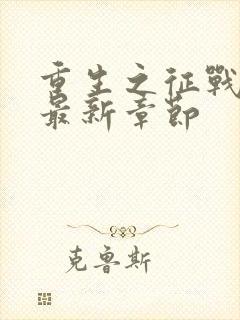 重生之征戰
最新章節
克魯斯